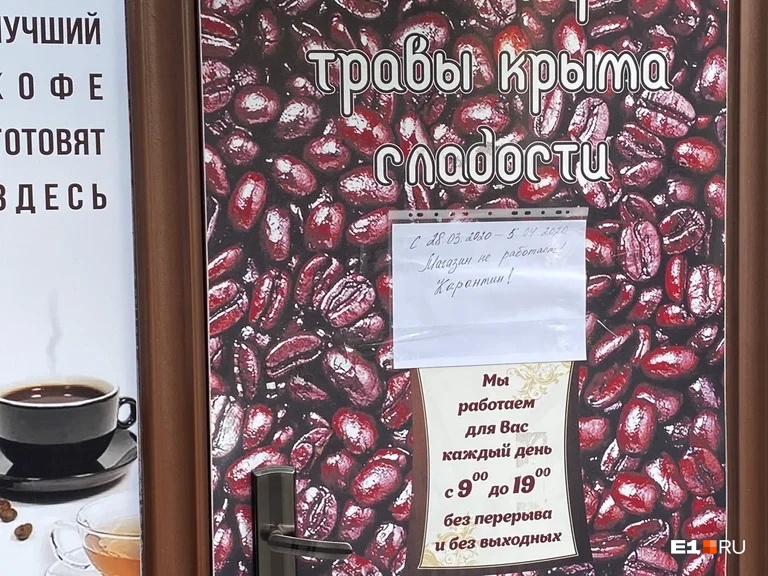 ЛУЧШИЙ
КОФЕ
ГОТОВЯТ
ЗДЕСЬ
травы крыма
сладости
С 28.03.2020 – 5.04.2020
Магазин не работает!
Карантин!
Мы
работаем
для Вас
каждый день
с 9⁰⁰ до 19⁰⁰
без перерыва
и без выходных
E1.RU